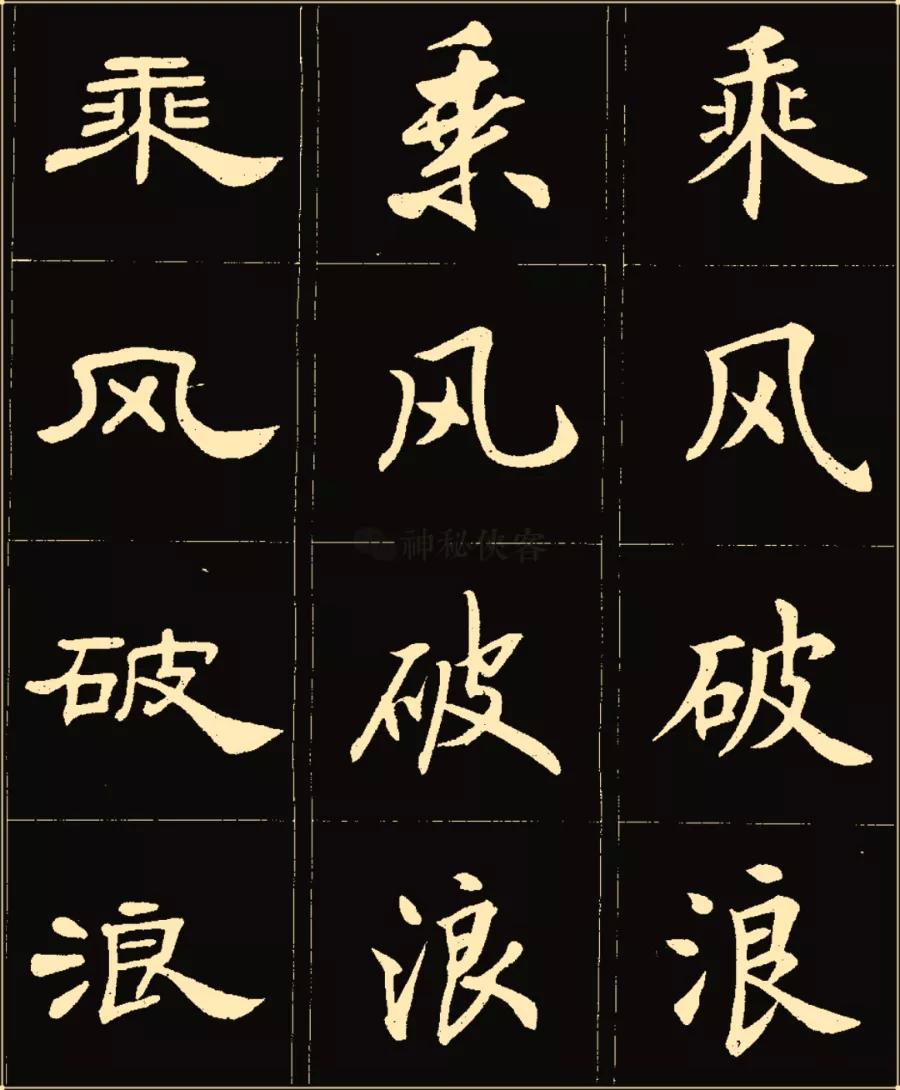 乘风破浪
乘风破浪
乘风破浪
神秘侠客